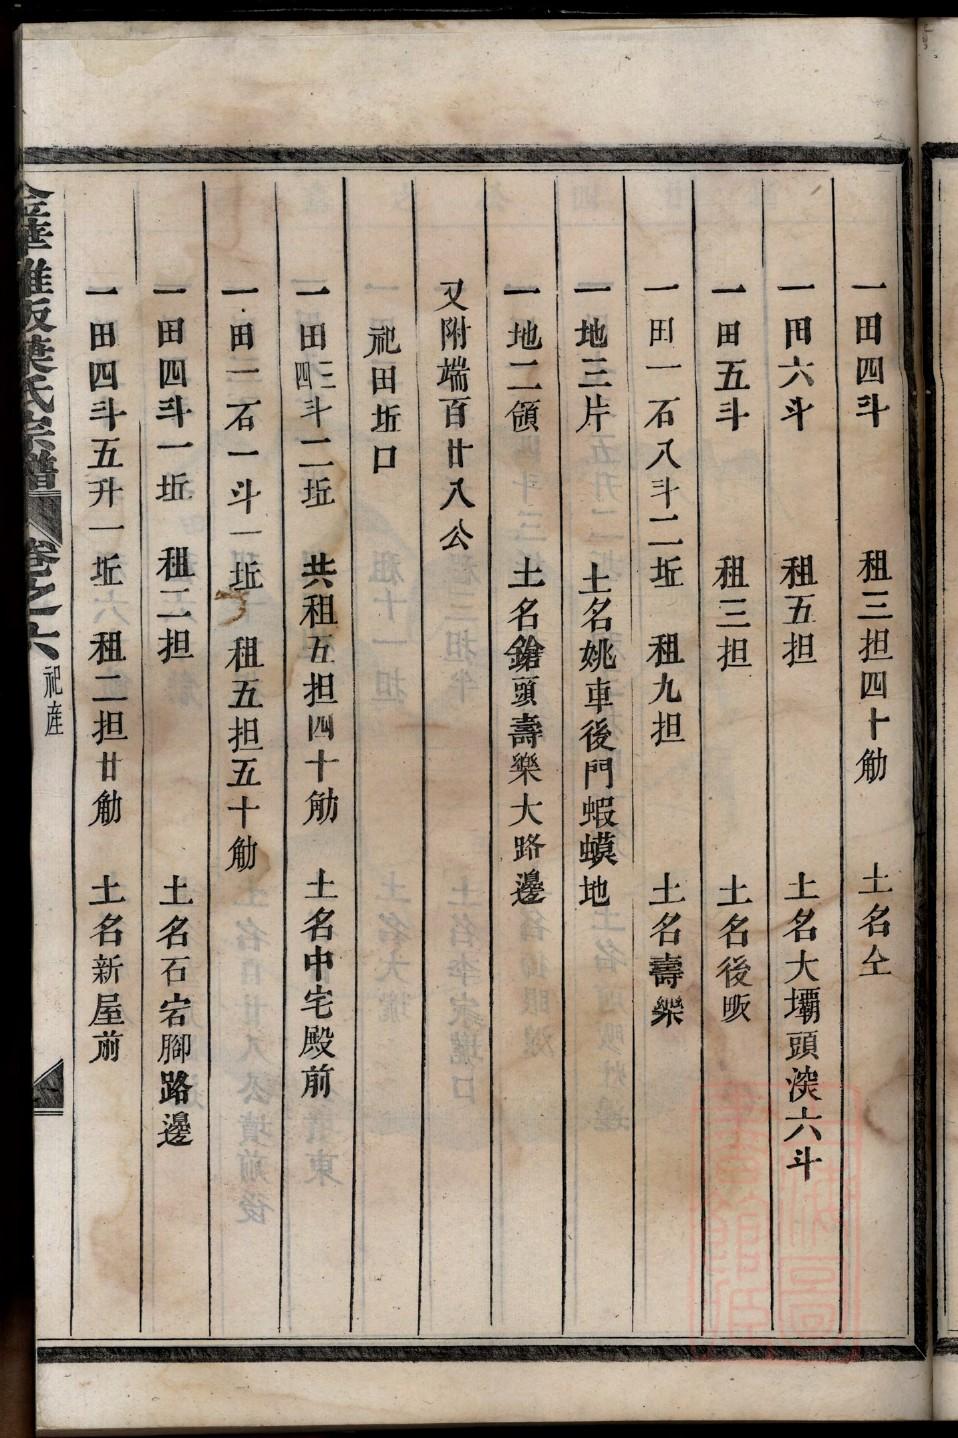 一田四斗 租三担四十觔 土名仝
一田六斗 租五担 土名大壩頭深六斗
一田五斗 租三担 土名後畈
一田一石八斗二坵 租九担 土名壽樂
一地三片 土名姚車後門蝦蟆地
一地二領 土名鎗頭壽樂大路邊
又附端百廿八公
祀田坵口
一田三四斗二坵 共租五担四十觔 土名中宅殿前
一田二石一斗一坵 租五担五十觔
一田四斗一坵 租二担 土名石宕腳路邊
一田四斗五升一坵 租二担廿觔 土名新屋前
金華 畈葉氏宗譜 卷之六 祀產